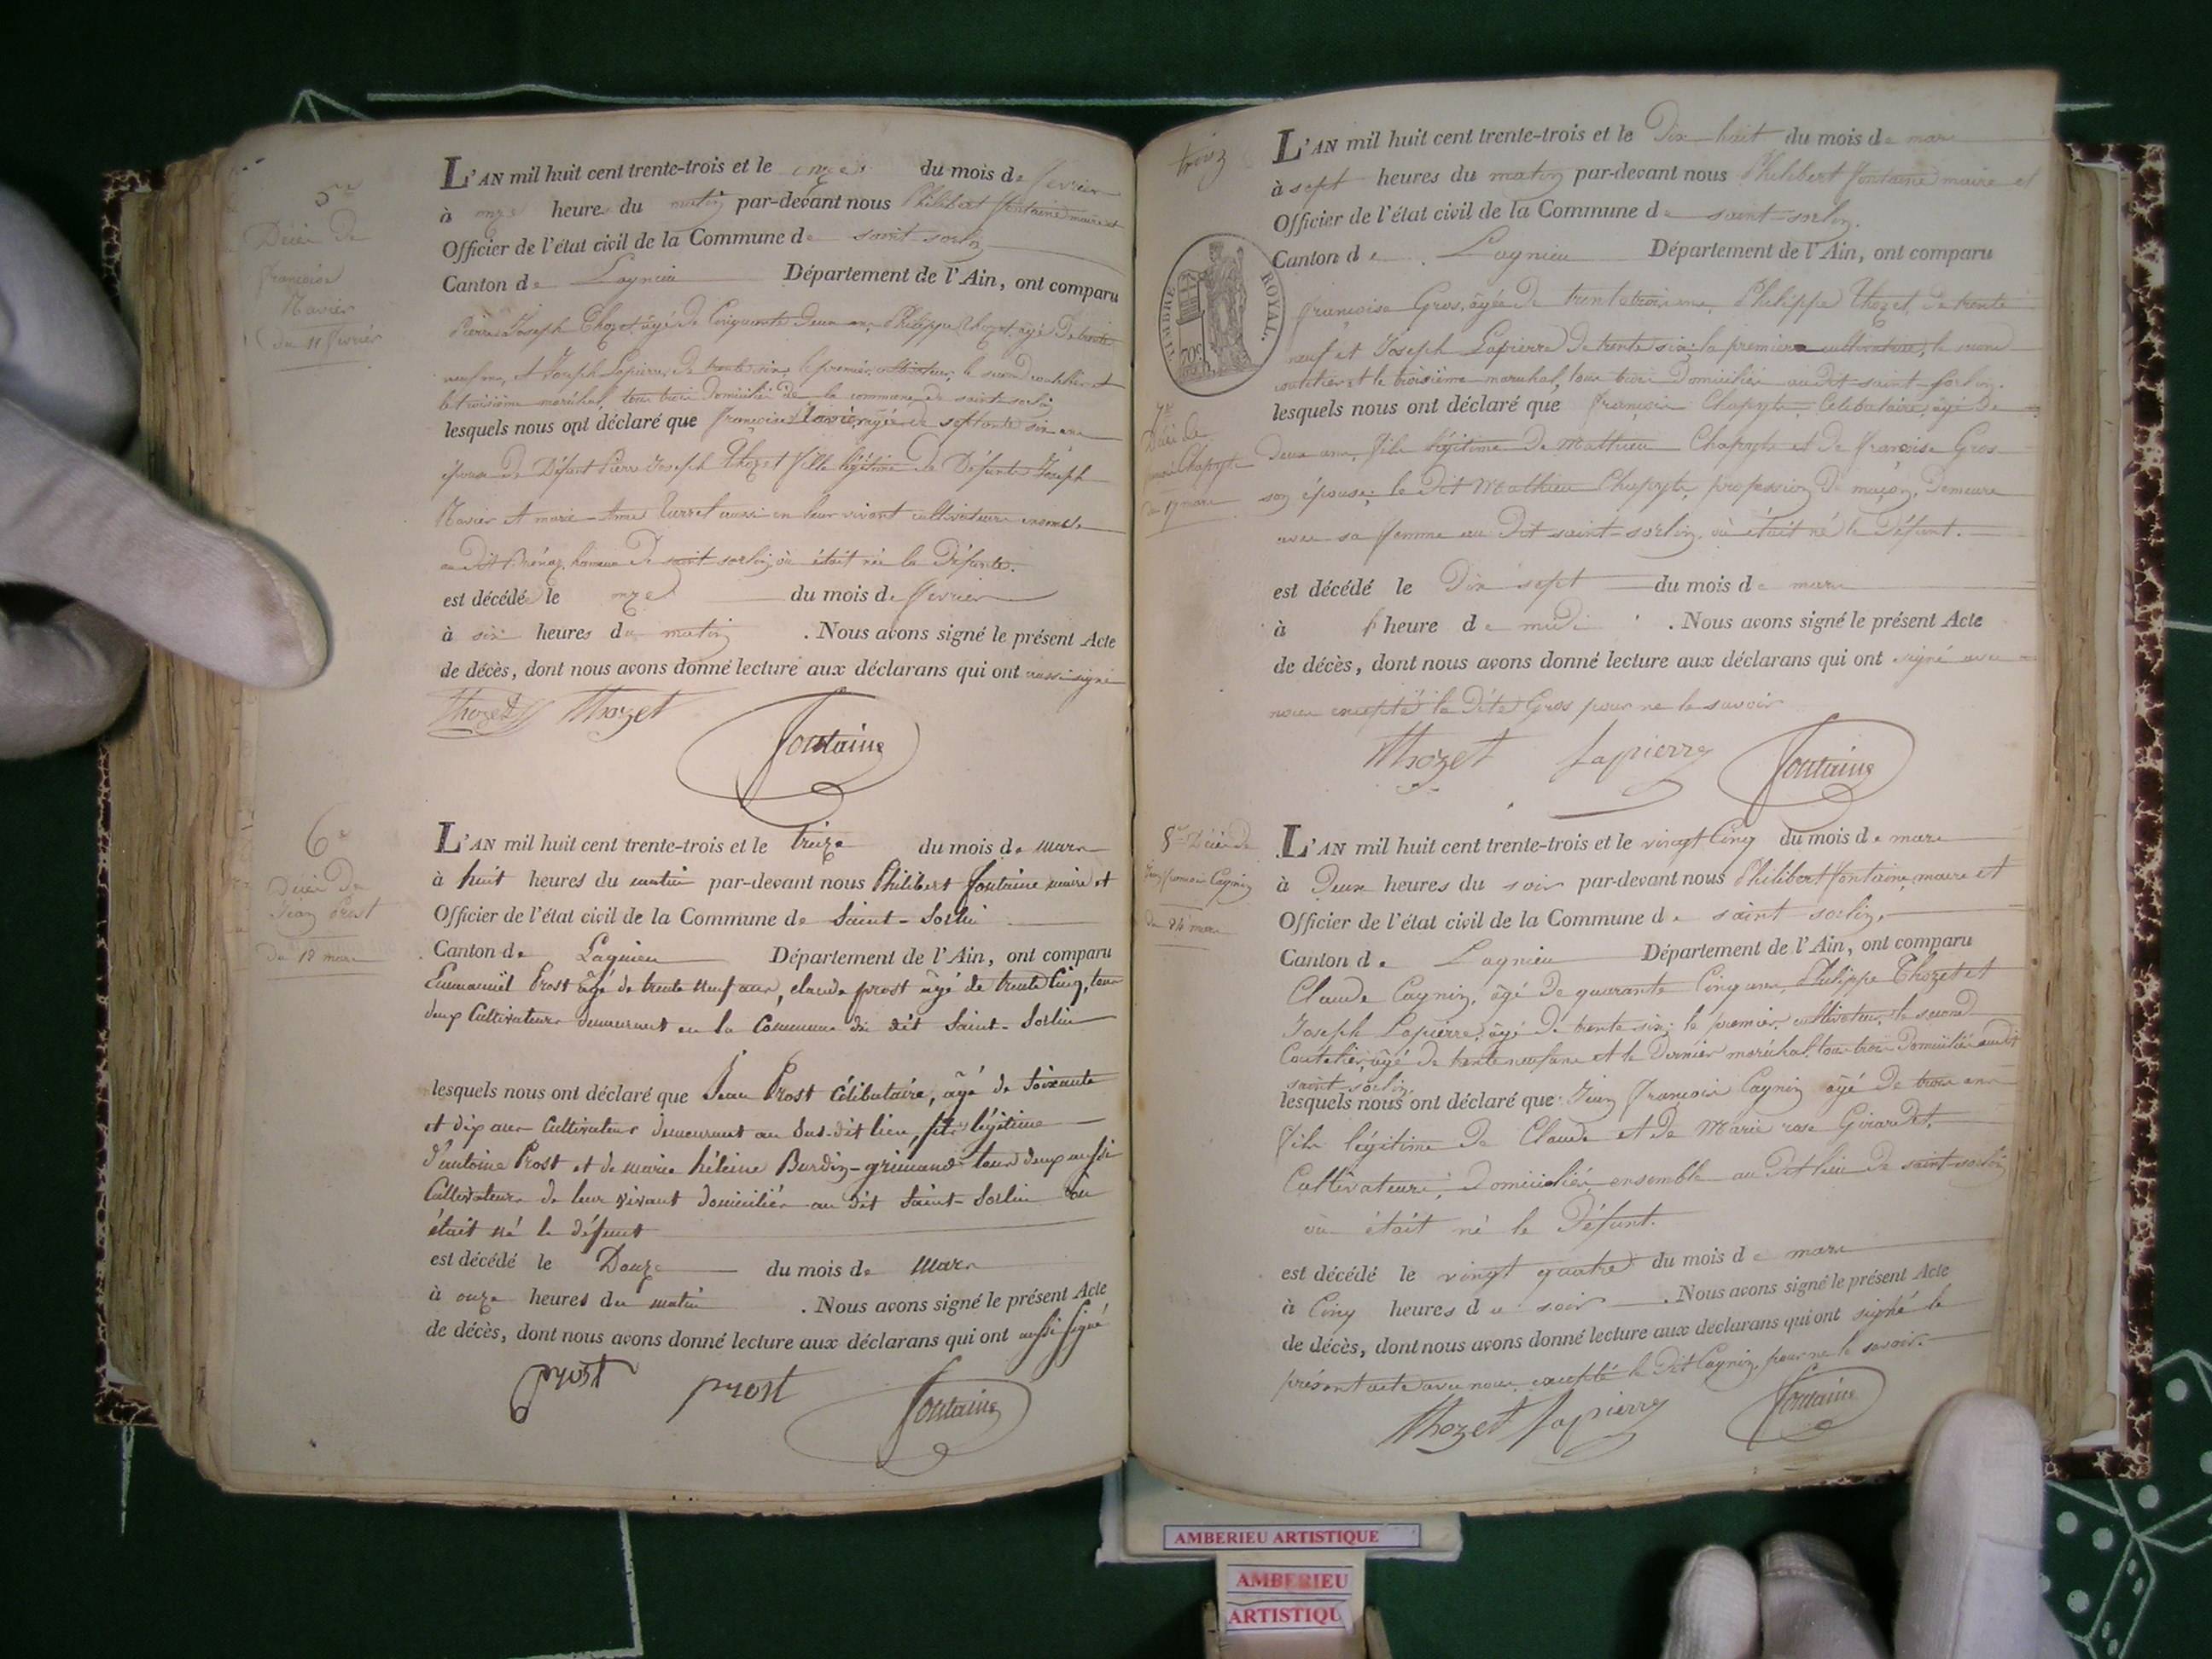 5me
Décès de
françoise
Navier
du 11 février
L'AN mil huit cent trente-trois et le onze du mois de fevrier
à onze heures du matin par-devant nous Philibert fontaine maire et
Officier de l'état civil de la Commune de saint-sorlin
Canton de Lagnieu Département de l'Ain, ont comparu
Pierre Joseph Thozet âgé de Cinquante deux ans, Philippe Thozet âgé de trente
neuf ans, et Joseph Lapierre, de trente six, le premier cultivateur, le second coutelier et
le troisième maréchal, tous trois domiciliés de la commune de saint-sorlin
lesquels nous ont déclaré que françoise Navier, âgée de septante six ans
épouse de Défunt Pierre Joseph Thozet fille légitime de Défunts Joseph
Navier et marie Turrel aussi en leur vivant cultivateurs
au dit hameau de saint-sorlin, où était née la Défunte.
est décédé le onze du mois de fevrier
à six heures du matin . Nous avons signé le présent Acte
de décès, dont nous avons donné lecture aux déclarans qui ont aussi signé
Thozet Thozet
fontaine
6e
Décès de
Jean Prost
du 12 mars
L'AN mil huit cent trente-trois et le treize du mois de mars
à huit heures du matin par-devant nous Philibert fontaine maire et
Officier de l'état civil de la Commune de Saint-Sorlin
Canton de Lagnieu Département de l'Ain, ont comparu
Emmanuël Prost âgé de trente neuf ans, claude prost âgé de trente Cinq, tous
deux Cultivateurs demeurant en la Commune du dit Saint-Sorlin
lesquels nous ont déclaré que Jean Prost célibataire, âgé de Soixante
et dix ans Cultivateur demeurant au Sus-dit lieu, fils légitime
d'antoine Prost et de marie héleine Burdin-grimand tous deux aussi
Cultivateurs de leur vivant domiciliés au dit Saint-Sorlin où
était né le défunt
est décédé le Douze du mois de mars
à onze heures du matin . Nous avons signé le présent Acte
de décès, dont nous avons donné lecture aux déclarans qui ont aussi signé
prost prost fontaine
trois
L'AN mil huit cent trente-trois et le Dix huit du mois de mars
à sept heures du matin par-devant nous Philibert fontaine maire et
Officier de l'état civil de la Commune de saint-sorlin.
Canton de Lagnieu Département de l'Ain, ont comparu
TIMBRE ROYAL.
70c
françoise Gros, âgée de trente trois ans, Philippe Thozet, de trente
neuf et Joseph Lapierre de trente six; la première cultivatrice, le second
coutelier et le troisième maréchal, tous trois domiciliés au dit saint-sorlin.
7me
Décès de
Chapyte
du 17 mars
lesquels nous ont déclaré que françois Chapyte, Célibataire, âgé de
deux ans, fils légitime de Mathieu Chapyte et de françoise Gros
son épouse; le dit Mathieu Chapyte, profession de maçon, demeure
avec sa femme au Dit saint-sorlin, où était né le Défunt.
est décédé le Dix sept du mois de mars
à heure de midi . Nous avons signé le présent Acte
de décès, dont nous avons donné lecture aux déclarans qui ont signé avec
nous excepté la Dite Gros pour ne le savoir
Thozet Lapierre fontaine
8me Décès de
Jean françois Cagnin
du 24 mars
L'AN mil huit cent trente-trois et le vingt Cinq du mois de mars
à Deux heures du soir par-devant nous Philibert fontaine, maire et
Officier de l'état civil de la Commune de saint sorlin.
Canton de Lagnieu Département de l'Ain, ont comparu
Claude Cagnin, âgé de quarante Cinq ans, Philippe Thozet et
Joseph Lapierre, âgé de trente six; le premier cultivateur, le second
Coutelier, âgé de trente neuf ans et le Dernier maréchal, tous trois Domiciliés audit
saint sorlin.
lesquels nous ont déclaré que Jean François Cagnin âgé de trois ans
fils légitime de Claude et de Marie rose Girardet,
Cultivateurs, domiciliés ensemble au Dit lieu de saint-sorlin
où était né le Défunt.
est décédé le vingt quatre du mois de mars
à Cinq heures du soir . Nous avons signé le présent Acte
de décès, dont nous avons donné lecture aux déclarans qui ont signé le
présent acte avec nous, excepté le Dit Cagnin, pour ne le savoir.
Thozet Lapierre fontaine
AMBERIEU ARTISTIQUE
AMBERIEU
ARTISTIQU